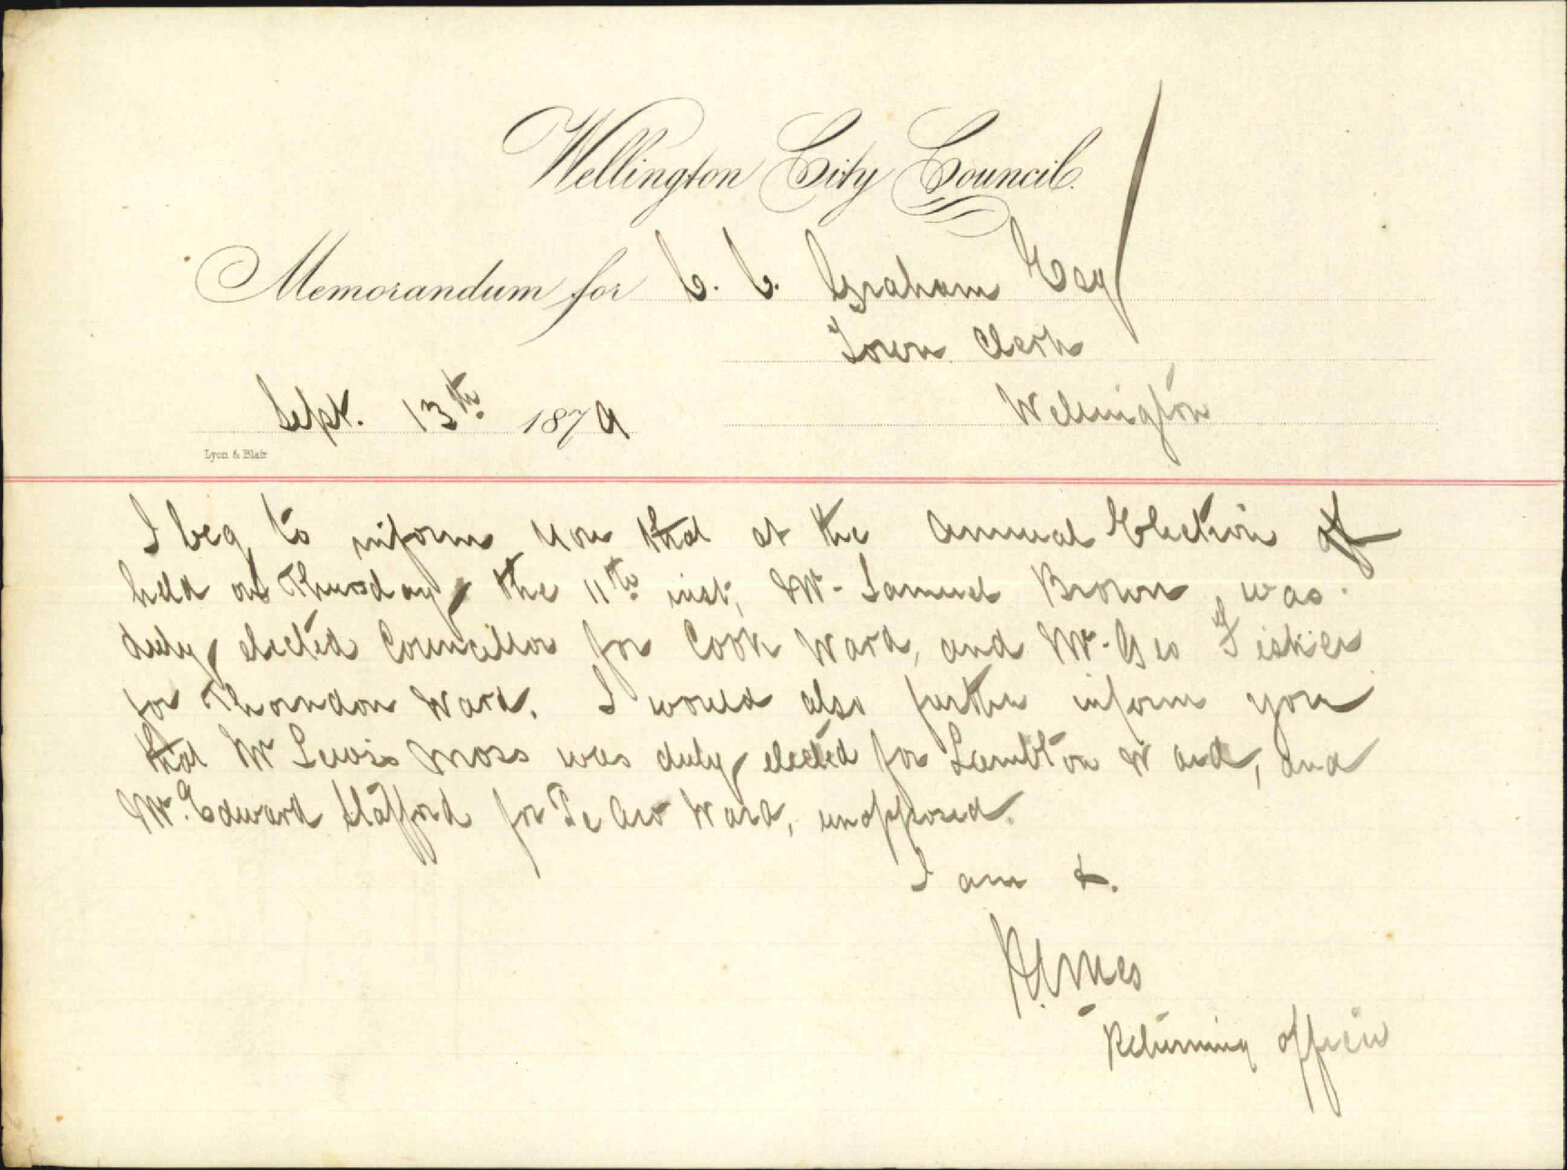 Wellington City Council.
Memorandum for C. C. Graham Esq
Town Clerk
Wellington
Sept. 13th 1879
Lyon & Blair
I beg to inform you that at the Annual Election of
held on Thursday, the 11th inst, Mr. Samuel Brown, was
duly elected Councillor for Cook Ward, and Mr. Geo Fisher
for Thorndon Ward. I would also further inform you
that Mr Lewis Moss was duly elected for Lambton Ward, and
Mr. Edward Stafford for Te Aro Ward, unopposed.
I am &.
Ames
Returning Officer